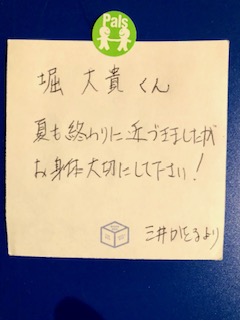 Pals
堀 大貴くん
夏も終わりに近づきましたが
お身体大切にして下さい!
三井かおるより